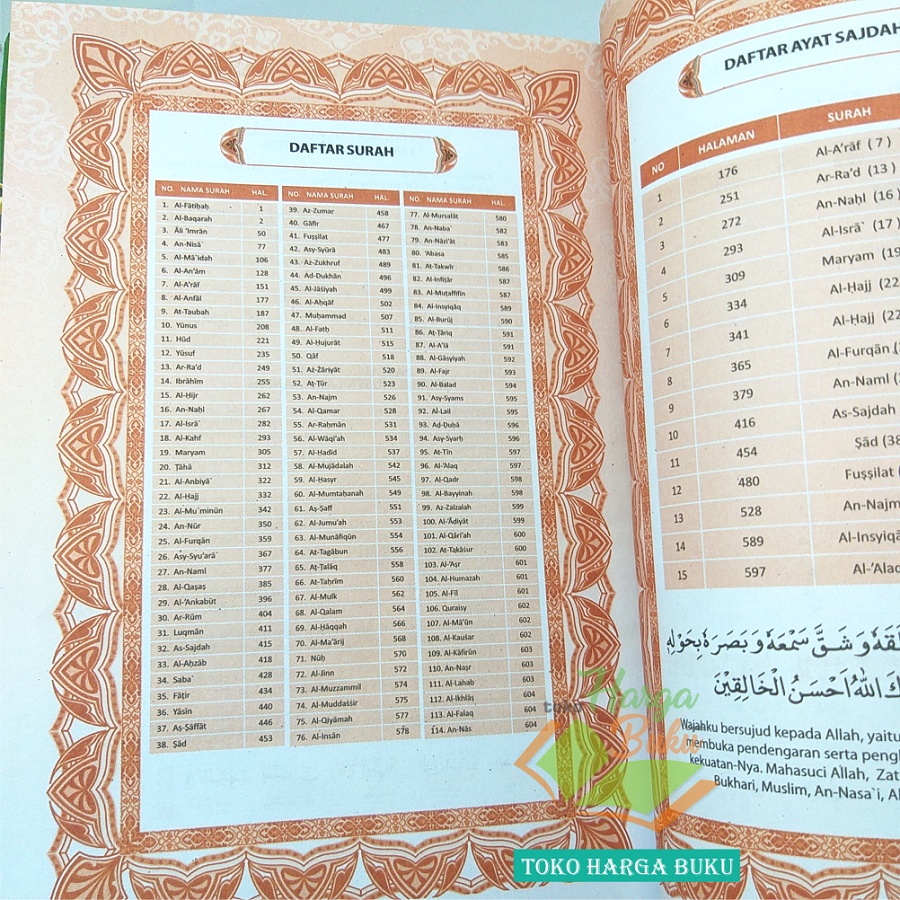 DAFTAR SURAH
NO. NAMA SURAH HAL.
1. Al-Fātiḥaḥ 1
2. Al-Baqarah 2
3. Āli 'Imrān 50
4. An-Nisā` 77
5. Al-Mā`idah 106
6. Al-An'ām 128
7. Al-A'rāf 151
8. Al-Anfāl 177
9. At-Taubah 187
10. Yūnus 208
11. Hūd 221
12. Yūsuf 235
13. Ar-Ra'd 249
14. Ibrāhīm 255
15. Al-Ḥijr 262
16. An-Naḥl 267
17. Al-Isrā` 282
18. Al-Kahf 293
19. Maryam 305
20. Ṭāhā 312
21. Al-Anbiyā` 322
22. Al-Ḥajj 332
23. Al-Mu`minūn 342
24. An-Nūr 350
25. Al-Furqān 359
26. Asy-Syu'arā` 367
27. An-Naml 377
28. Al-Qaṣaṣ 385
29. Al-'Ankabūt 396
30. Ar-Rūm 404
31. Luqmān 411
32. As-Sajdah 415
33. Al-Aḥzāb 418
34. Saba` 428
35. Fāṭir 434
36. Yāsīn 440
37. Aṣ-Ṣāffāt 446
38. Ṣād 453
NO. NAMA SURAH HAL.
39. Az-Zumar 458
40. Gāfir 467
41. Fuṣṣilat 477
42. Asy-Syūrā 483
43. Az-Zukhruf 489
44. Ad-Dukhān 496
45. Al-Jāṡiyah 499
46. Al-Aḥqāf 502
47. Muḥammad 507
48. Al-Fatḥ 511
49. Al-Ḥujurāt 515
50. Qāf 518
51. Aż-Żāriyāt 520
52. Aṭ-Ṭūr 523
53. An-Najm 526
54. Al-Qamar 528
55. Ar-Raḥmān 531
56. Al-Wāqi'ah 534
57. Al-Ḥadīd 537
58. Al-Mujādalah 542
59. Al-Ḥasyr 545
60. Al-Mumtaḥanah 549
61. Aṣ-Ṣaff 551
62. Al-Jumu'ah 553
63. Al-Munāfiqūn 554
64. At-Tagābun 556
65. Aṭ-Ṭalāq 558
66. At-Taḥrīm 560
67. Al-Mulk 562
68. Al-Qalam 564
69. Al-Ḥāqqah 566
70. Al-Ma'ārij 568
71. Nūḥ 570
72. Al-Jinn 572
73. Al-Muzzammil 574
74. Al-Muddaṡṡir 575
75. Al-Qiyāmah 577
76. Al-Insān 578
NO. NAMA SURAH HAL.
77. Al-Mursalāt 580
78. An-Naba` 582
79. An-Nāri'āt 583
80. 'Abasa 585
81. At-Takwīr 586
82. Al-Infiṭār 587
83. Al-Muṭaffifīn 587
84. Al-Insyiqāq 589
85. Al-Burūj 590
86. Aṭ-Ṭāriq 591
87. Al-A'lā 591
88. Al-Gāsyiyah 592
89. Al-Fajr 593
90. Al-Balad 594
91. Asy-Syams 595
92. Al-Lail 595
93. Aḍ-Ḍuḥā 596
94. Asy-Syarḥ 596
95. At-Tīn 597
96. Al-'Alaq 597
97. Al-Qadr 598
98. Al-Bayyinah 598
99. Az-Zalzalah 599
100. Al-'Ādiyāt 599
101. Al-Qāri'ah 600
102. At-Takāṡur 600
103. Al-'Aṣr 601
104. Al-Humazah 601
105. Al-Fīl 601
106. Quraisy 602
107. Al-Mā'ūn 602
108. Al-Kauṡar 602
109. Al-Kāfirūn 603
110. An-Naṣr 603
111. Al-Lahab 603
112. Al-Ikhlāṣ 604
113. Al-Falaq 604
114. An-Nās 604
DAFTAR AYAT SAJDAH
NO HALAMAN SURAH
1 176 Al-A'rāf ( 7 )
2 251 Ar-Ra'd (13 )
3 272 An-Naḥl (16 )
4 293 Al-Isrā` (17 )
5 309 Maryam (19
6 334 Al-Ḥajj (22
7 341 Al-Ḥajj (22
8 365 Al-Furqān (
9 379 An-Naml (2
10 416 As-Sajdah
11 454 Ṣād (38
12 480 Fuṣṣilat (
13 528 An-Najm
14 589 Al-Insyiqā
15 597 Al-'Alaq
لَقَهٗ وَشَقَّ سَمْعَهٗ وَبَصَرَهٗ بِحَوْلِهٖ
كَ اللّٰهُ اَحْسَنُ الْخَالِقِيْنَ
Wajahku bersujud kepada Allah, yaitu
membuka pendengaran serta pengl
kekuatan-Nya. Mahasuci Allah, Zat
Bukhari, Muslim, An-Nasa`i, A
toko Harga Buku
TOKO HARGA BUKU